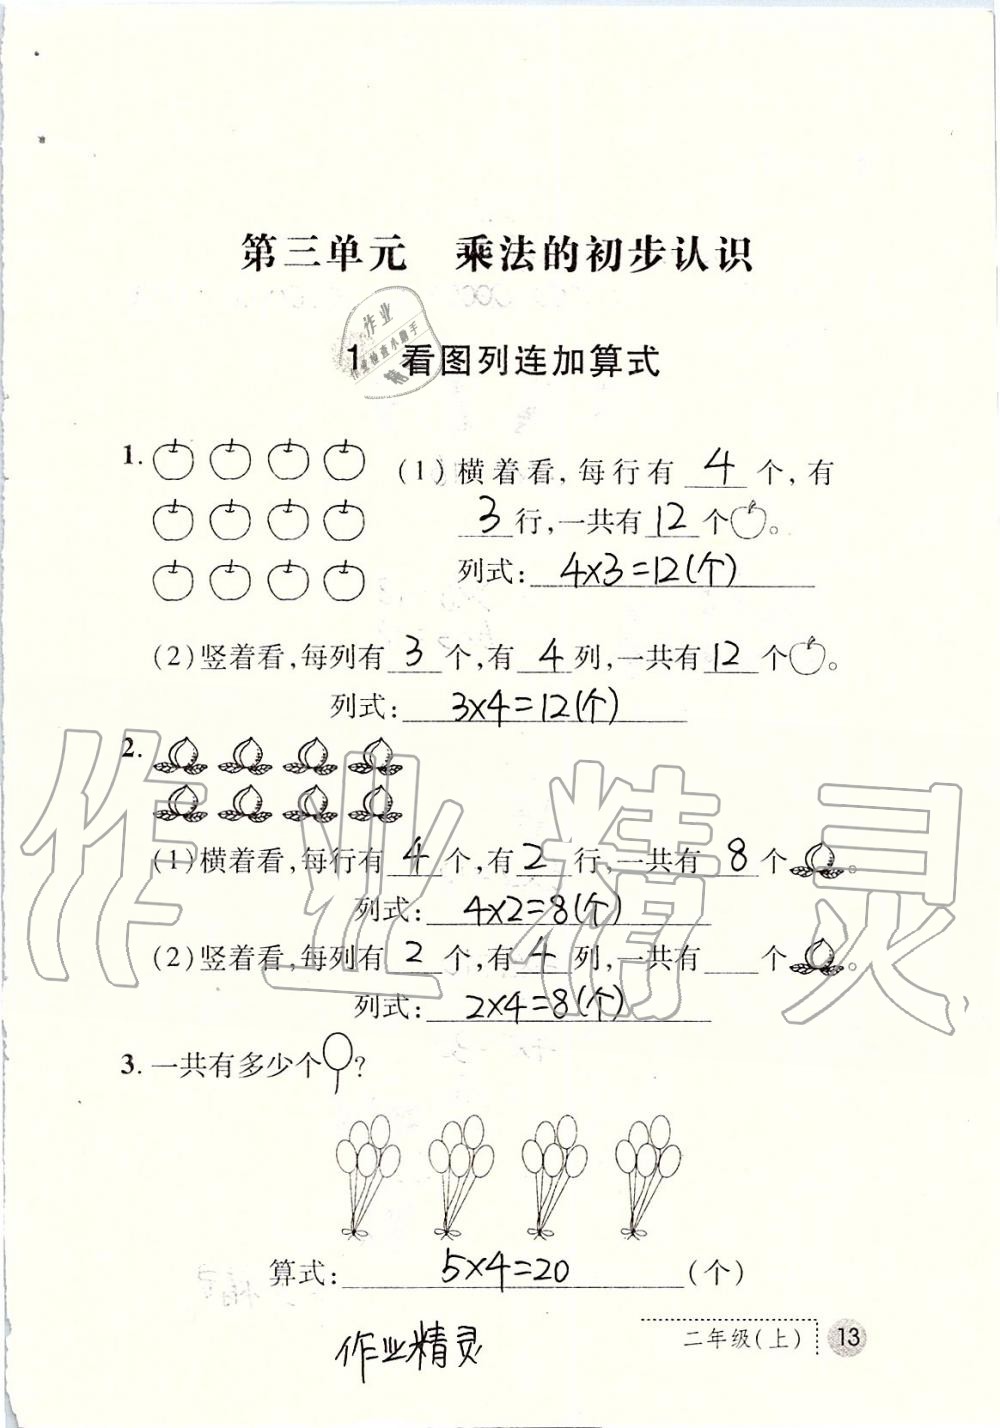 第三单元 乘法的初步认识
作业
作业检查小助手
1 看图列连加算式
1.
(1)横着看,每行有 4 个,有
3 行,一共有 12 个。
列式: 4×3=12(个)
(2)竖着看,每列有 3 个,有 4 列,一共有 12 个。
列式: 3×4=12(个)
2.
(1)横着看,每行有 4 个,有 2 行,一共有 8 个。
列式: 4×2=8(个)
(2)竖着看,每列有 2 个,有 4 列,一共有 个。
列式: 2×4=8(个)
作业精灵
3. 一共有多少个?
算式: 5×4=20 (个)
作业精灵
二年级(上) 13